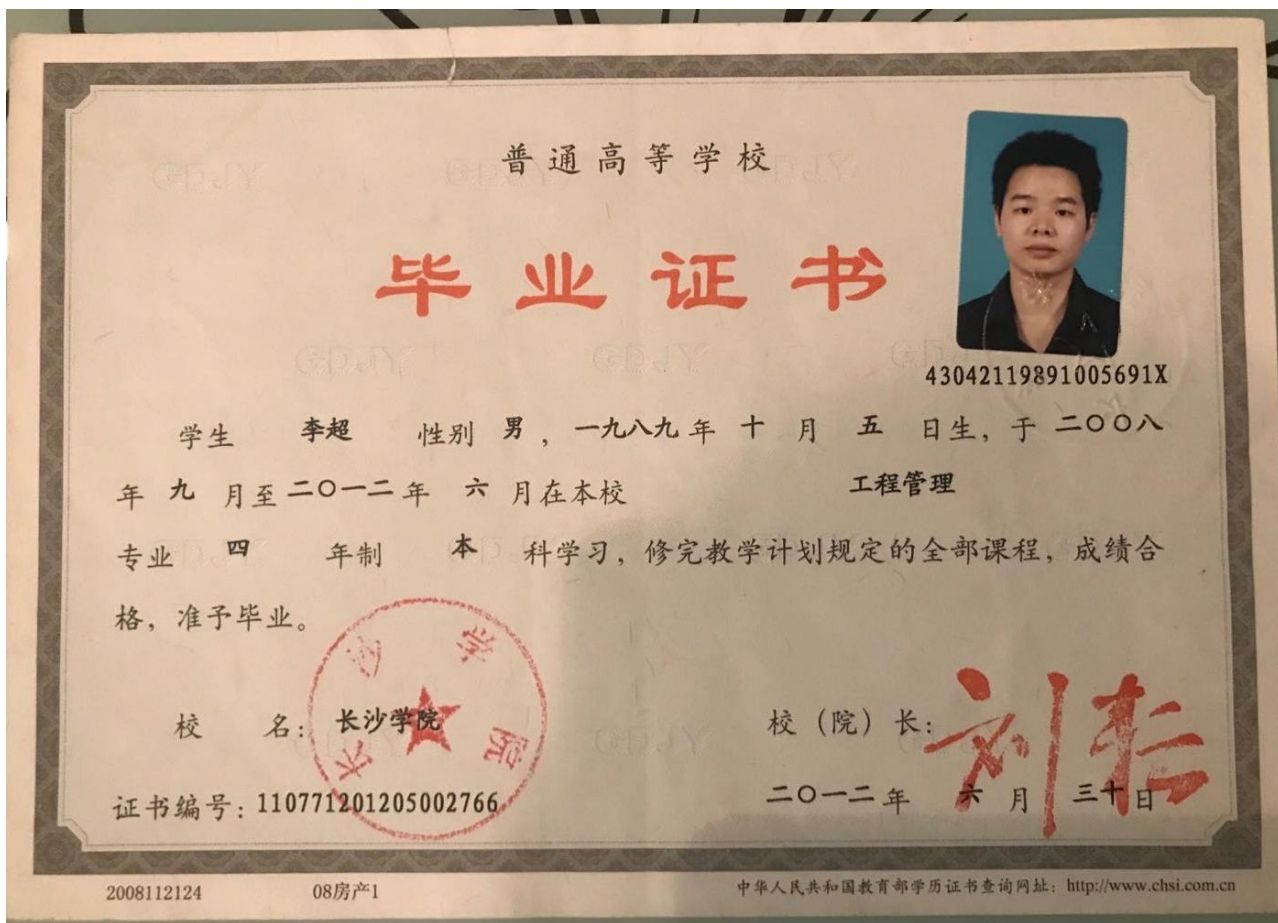 普通高等学校
毕业证书
43042119891005691X
学生 李超 性别 男，一九八九年 十 月 五 日生，于 二〇〇八
年 九 月至 二〇一二 年 六 月在本校 工程管理
专业 四 年制 本 科学习，修完教学计划规定的全部课程，成绩合
格，准予毕业。
长沙学院
校 名：长沙学院 校（院）长：
证书编号：110771201205002766 二〇一二年 六 月 三十日
2008112124 08房产1 中华人民共和国教育部学历证书查询网址：http://www.chsi.com.cn